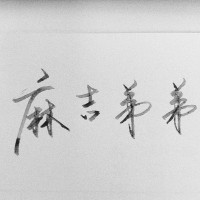 麻吉弟弟